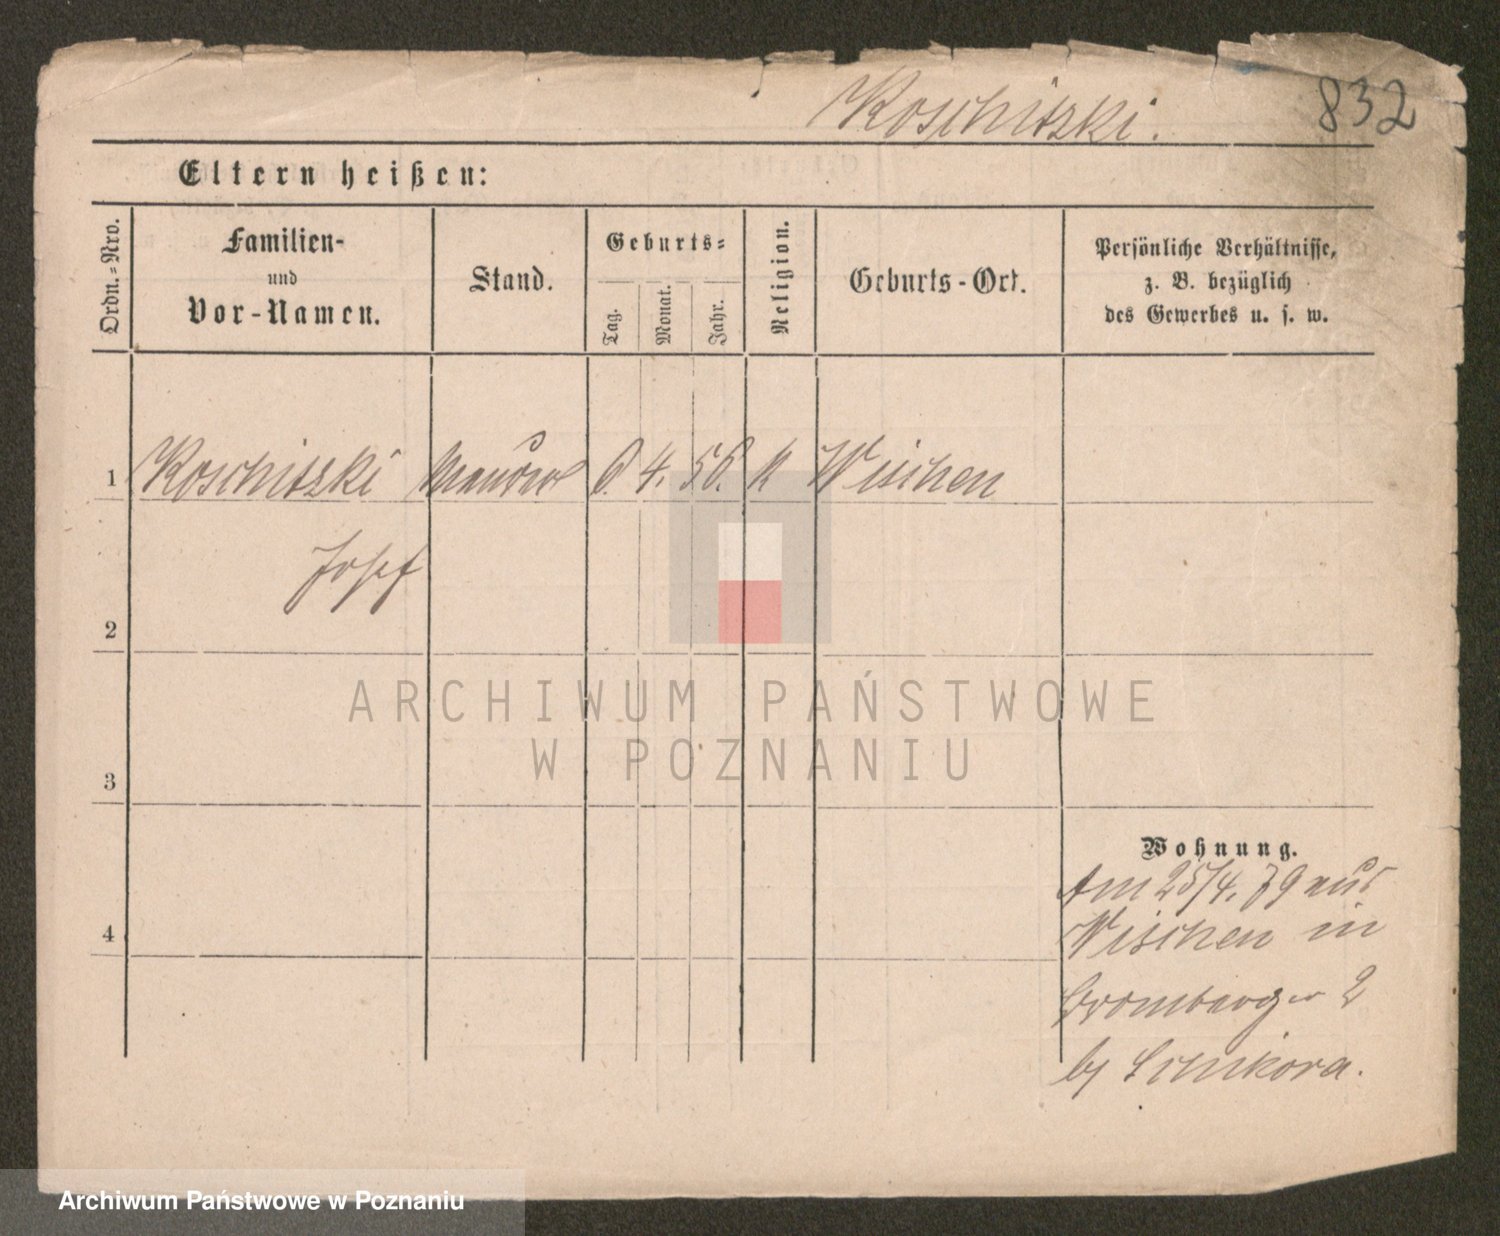 Koschitzki.
832
Eltern heißen:
Ordn.-Nro.
Familien-
und
Vor-Namen.
Stand.
Geburts-
Tag.
Monat.
Jahr.
Religion.
Geburts-Ort.
Persönliche Verhältnisse,
z. B. bezüglich
des Gewerbes u. s. w.
1 Koschitzki Maurer 6. 4. 56. k Wischen
Josef
2
ARCHIWUM PAŃSTWOWE
W POZNANIU
3
Wohnung.
Am 25/4. 79 aus
4
Wischen in
Bromberger 2
by
Archiwum Państwowe w Poznaniu